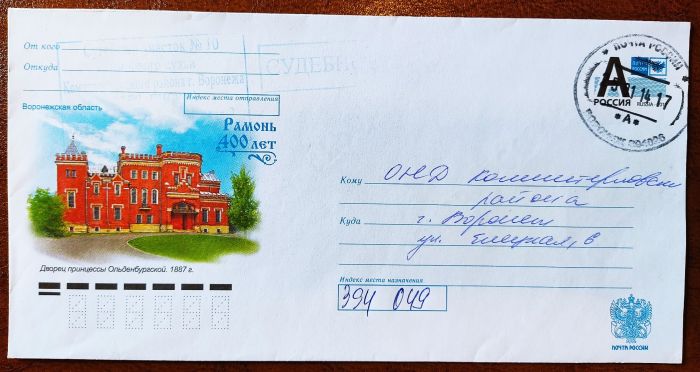 От кого
Откуда
участок № 10
района г. Воронежа
СУДЕБН
Индекс места отправления
Воронежская область
Рамонь
400 лет
Дворец принцессы Ольденбургской. 1887 г.
ПОЧТА РОССИИ
А
РОССИЯ RUSSIA
14 17
*А*
ВОРОНЕЖ 394026
Кому ОНД Коминтерновск
района
Куда г. Воронеж
ул. Елецкая, 6
Индекс места назначения
394 049
ПОЧТА РОССИИ